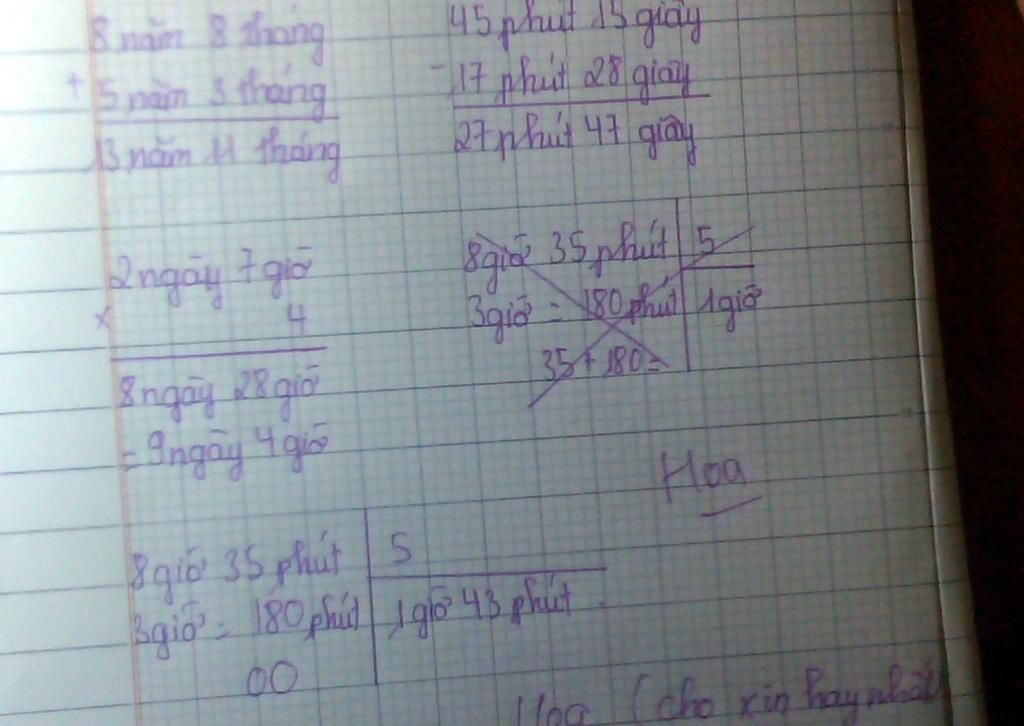 8 năm 8 tháng
+ 5 năm 3 tháng
13 năm 11 tháng
45 phút 15 giây
- 17 phút 28 giây
27 phút 47 giây
2 ngày 7 giờ
x 4
8 ngày 28 giờ
= 9 ngày 4 giờ
8 giờ 35 phút 5
3 giờ = 180 phút 1 giờ
35 + 180 =
Hoa
8 giờ 35 phút 5
3 giờ = 180 phút 1 giờ 43 phút
00
Hoa (cho xin hay nhất